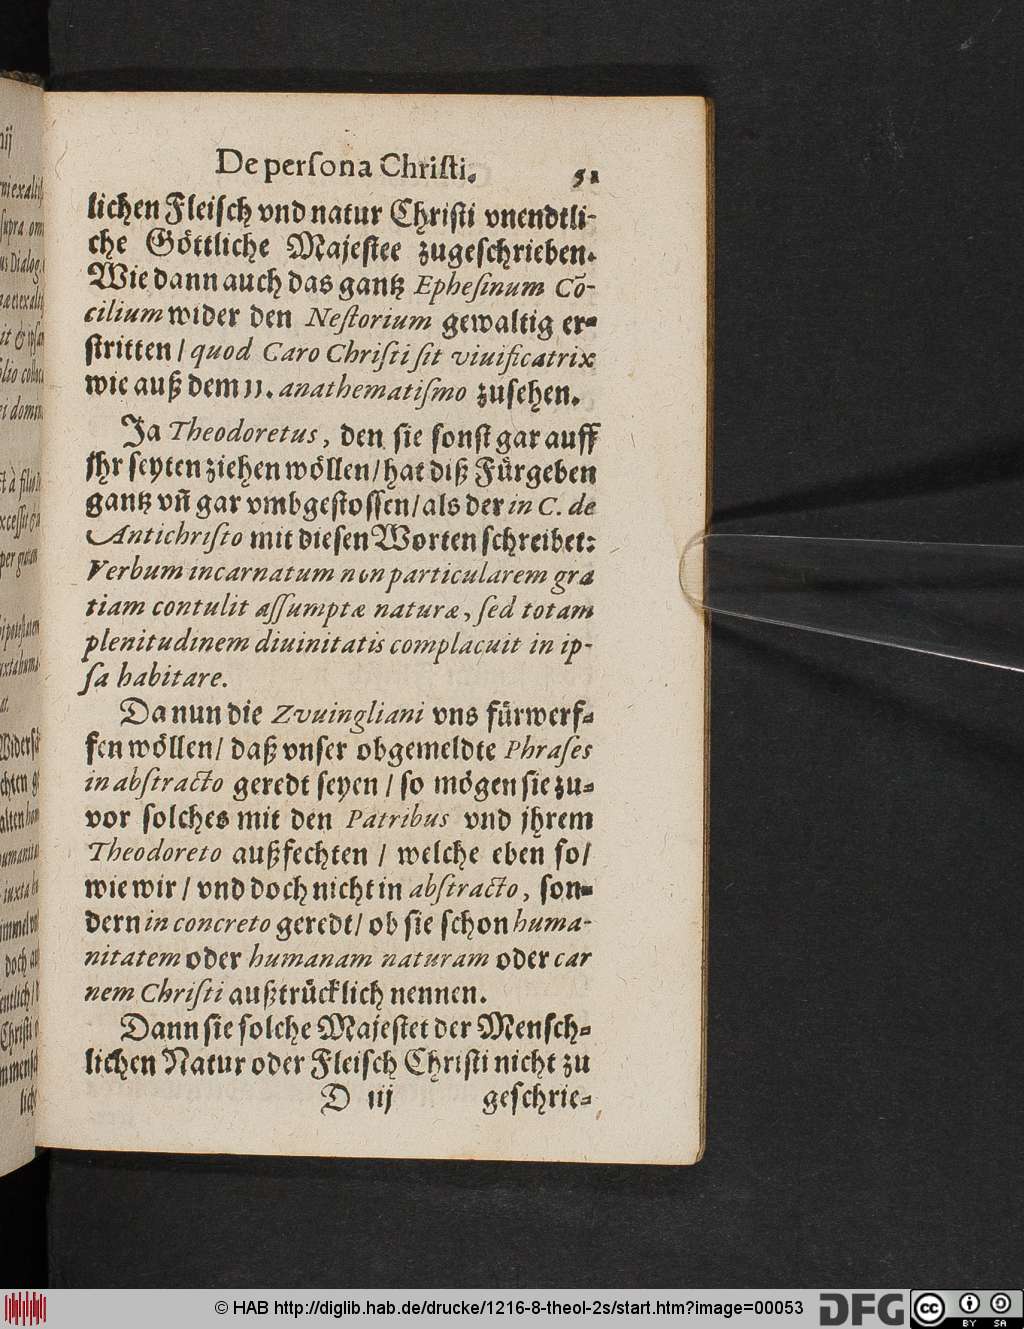 De perſona Chriſti. 51
lichen Fleiſch vnd natur Chriſti vnendtli-
che Göttliche Majeſtee zugeſchrieben.
Wie dann auch das gantz Epheſinum Cō-
cilium wider den Neſtorium gewaltig er-
ſtritten / quod Caro Chriſti ſit viuificatrix
wie auß dem 11. anathematiſmo zuſehen.
Ja Theodoretus, den ſie ſonſt gar auff
jhr ſeyten ziehen wöllen / hat diß Fürgeben
gantz vn̄ gar vmbgeſtoſſen / als der in C. de
Antichriſto mit dieſen Worten ſchreibet:
Verbum incarnatum non particularem gra
tiam contulit aſſumptæ naturæ, ſed totam
plenitudinem diuinitatis complacuit in ip-
ſa habitare.
Da nun die Zvuingliani vns fürwerf-
fen wöllen / daß vnſer obgemeldte Phraſes
in abſtracto geredt ſeyen / ſo mögen ſie zu-
vor ſolches mit den Patribus vnd jhrem
Theodoreto außfechten / welche eben ſo /
wie wir / vnd doch nicht in abſtracto, ſon-
dern in concreto geredt / ob ſie ſchon huma-
nitatem oder humanam naturam oder car
nem Chriſti außtrücklich nennen.
Dann ſie ſolche Majeſtet der Menſch-
lichen Natur oder Fleiſch Chriſti nicht zu
D iij geſchrie-
© HAB http://diglib.hab.de/drucke/1216-8-theol-2s/start.htm?image=00053
DFG
cc
BY SA